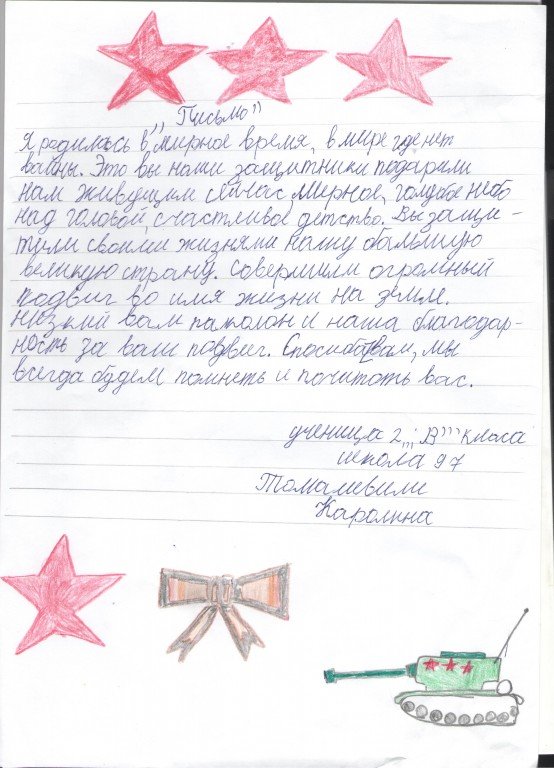 ,, Письмо"
Я родилась в мирное время, в мире где нет
вайны. Это вы наши защитники подарили
нам живущим сейчас мерное, голубое небо
над головой, счастливое детство. Вы защи-
тили своими жизнями нашу бальшую
великую страну. Совершили огромный
подвиг во имя жизни на земле.
Низкий вам паклон и наша благодар-
ность за ваш подвиг. Спосибо вам, мы
всегда будем помнеть и почитать вас.
ученица 2 ,,В" класа
школа 97
Томашвили
Каролина